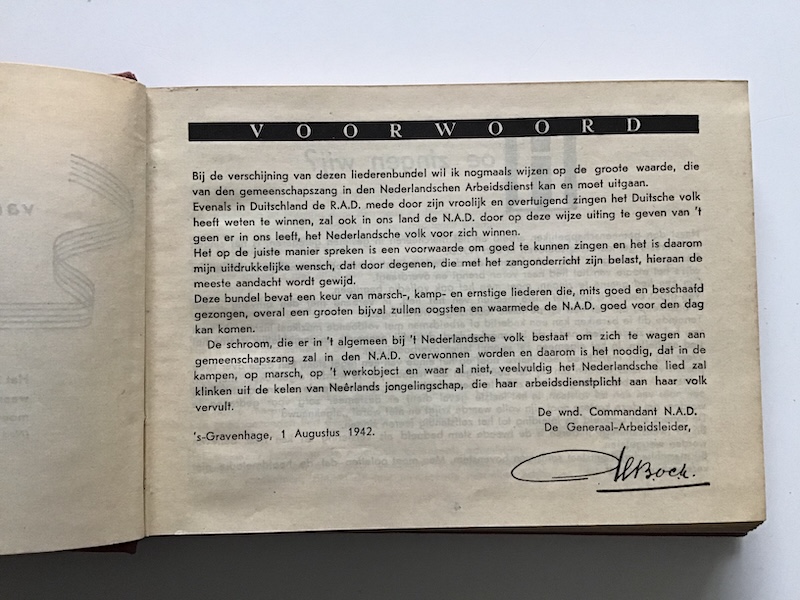 VOORWOORD
Bij de verschijning van dezen liederenbundel wil ik nogmaals wijzen op de groote waarde, die
van den gemeenschapszang in den Nederlandschen Arbeidsdienst kan en moet uitgaan.
Evenals in Duitschland de R.A.D. mede door zijn vroolijk en overtuigend zingen het Duitsche volk
heeft weten te winnen, zal ook in ons land de N.A.D. door op deze wijze uiting te geven van 't
geen er in ons leeft, het Nederlandsche volk voor zich winnen.
Het op de juiste manier spreken is een voorwaarde om goed te kunnen zingen en het is daarom
mijn uitdrukkelijke wensch, dat door degenen, die met het zangonderricht zijn belast, hieraan de
meeste aandacht wordt gewijd.
Deze bundel bevat een keur van marsch-, kamp- en ernstige liederen die, mits goed en beschaafd
gezongen, overal een grooten bijval zullen oogsten en waarmede de N.A.D. goed voor den dag
kan komen.
De schroom, die er in 't algemeen bij 't Nederlandsche volk bestaat om zich te wagen aan
gemeenschapszang zal in den N.A.D. overwonnen worden en daarom is het noodig, dat in de
kampen, op marsch, op 't werkobject en waar al niet, veelvuldig het Nederlandsche lied zal
klinken uit de kelen van Neêrlands jongelingschap, die haar arbeidsdienstplicht aan haar volk
vervult.
De wnd. Commandant N.A.D.
's-Gravenhage, 1 Augustus 1942.
De Generaal-Arbeidsleider,
Bock.